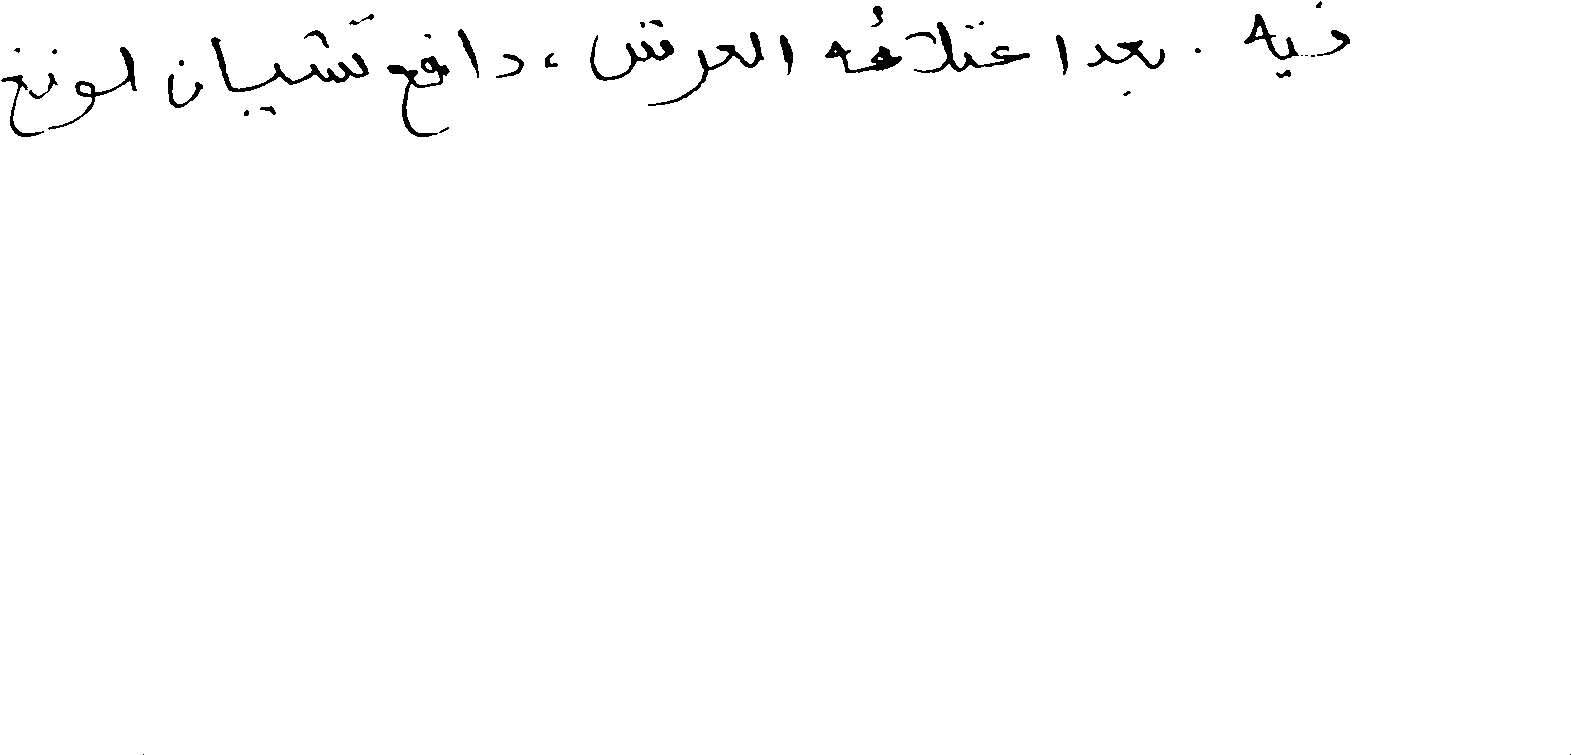 فيه . بعد اعتلائه العرش ، دافع تشيان لونغ